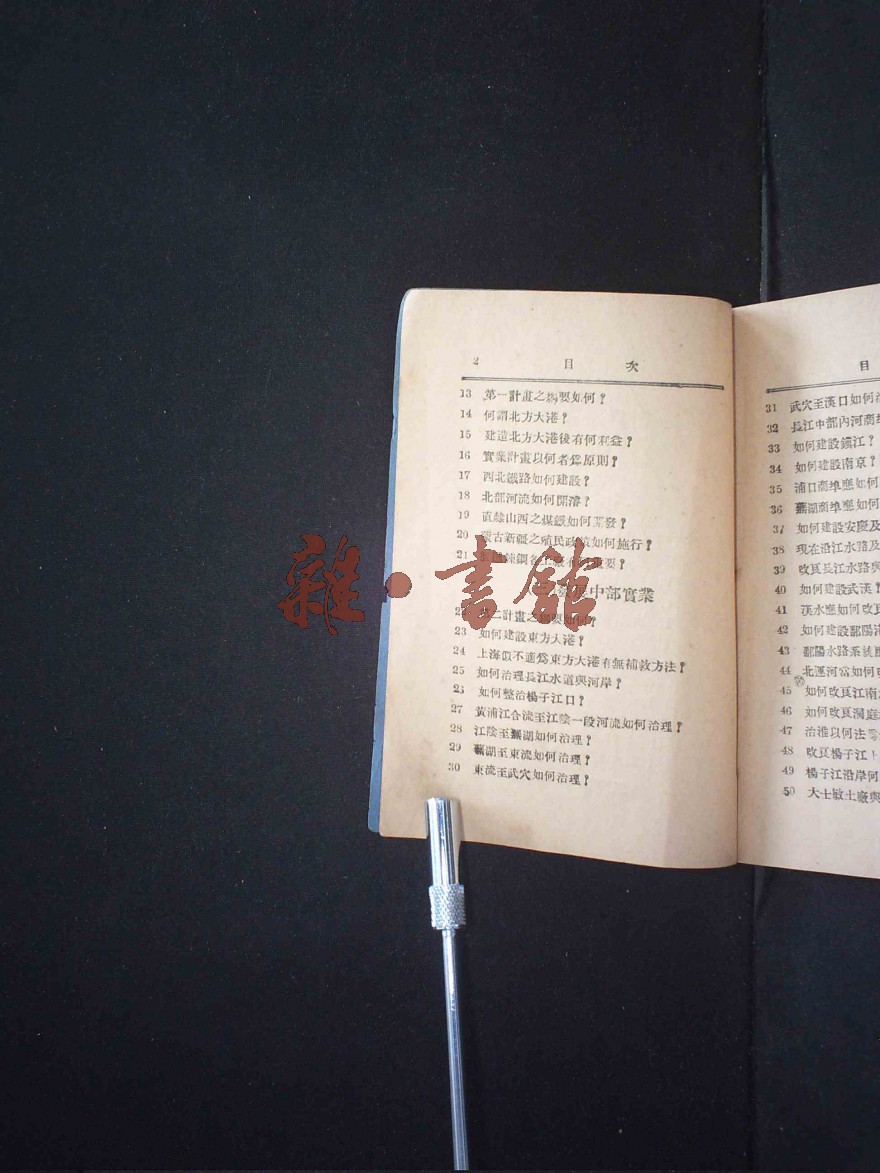 2 目次
13 第一計畫之綱要如何？
14 何謂北方大港？
15 建造北方大港後有何利益？
16 實業計畫以何者爲原則？
17 西北鐵路如何建設？
18 北部河流如何開濬？
19 直隸山西之煤鐵如何開發？
20 蒙古新疆之殖民政策如何施行？
21 鍊鋼各工廠有何重要？
中部實業
22 第二計畫之綱要如何？
23 如何建設東方大港？
24 上海似不適爲東方大港有無補救方法？
25 如何治理長江水道與河岸？
26 如何整治楊子江口？
27 黃浦江合流至江陰一段河流如何治理？
28 江陰至蕪湖如何治理？
29 蕪湖至東流如何治理？
30 東流至武穴如何治理？
目
31 武穴至漢口如何
32 長江中部內河商埠
33 如何建設鎮江？
34 如何建設南京？
35 浦口商埠應如何
36 蕪湖商埠應如何
37 如何建設安慶及
38 現在沿江水路及
39 改良長江水路與
40 如何建設武漢？
41 漢水應如何改良
42 如何建設鄱陽
43 鄱陽水路系統
44 北運河當如何
45 如何改良江南
46 如何改良洞庭
47 治淮以何法
48 改良楊子江
49 楊子江沿岸何
50 大士敏土廠與
雜·書館